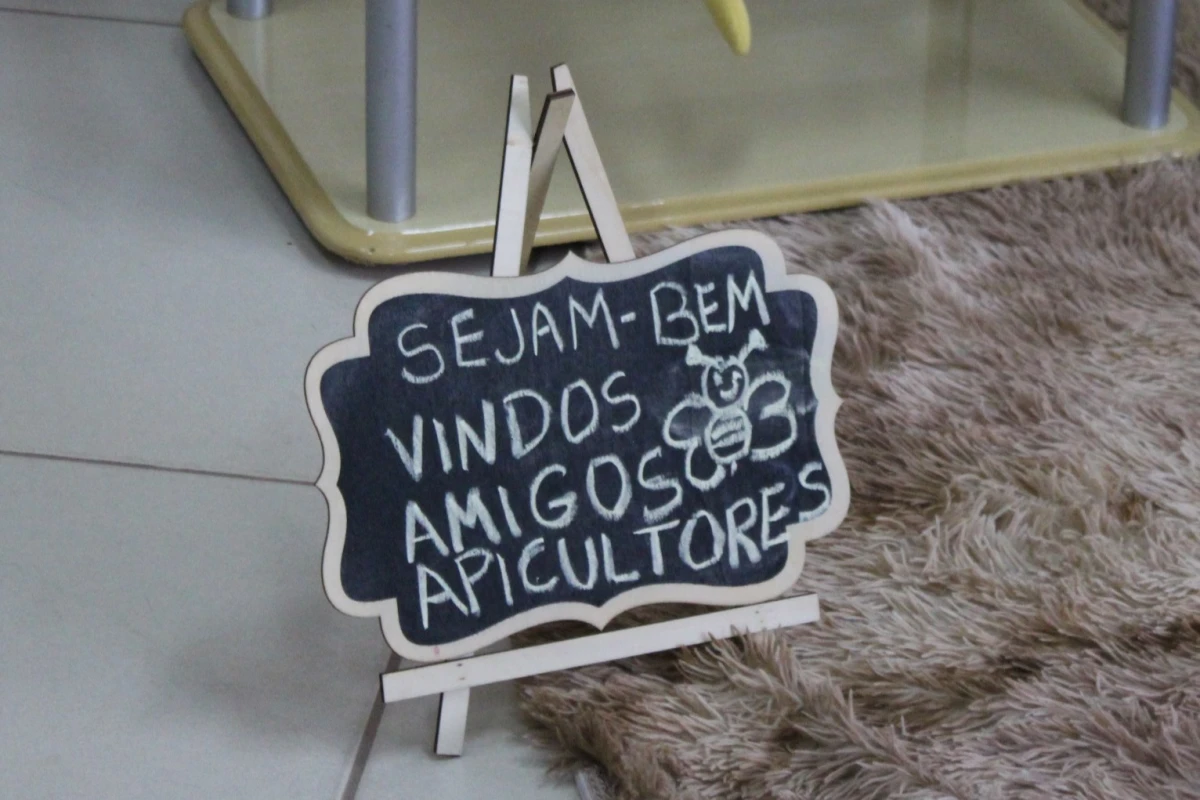 SEJAM-BEM
VINDOS
AMIGOS
APICULTORES